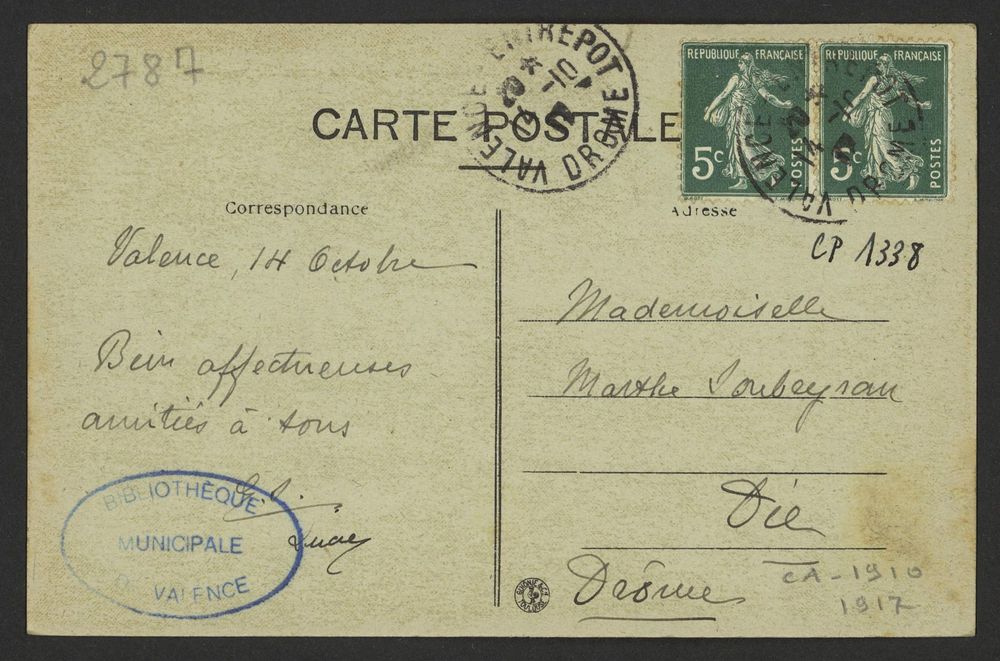 2787
CARTE POSTALE
VALENCE ENTREPOT DROME
RÉPUBLIQUE FRANÇAISE
5c
POSTES
RÉPUBLIQUE FRANÇAISE
5c
POSTES
VALENCE ENTREPOT DROME
Correspondance
Adresse
CP 1338
Valence, 14 Octobre
Bien affectueuses
amitiés à tous
Mademoiselle
Marthe Soubeyran
Die
Drôme
BIBLIOTHÈQUE
MUNICIPALE
DE VALENCE
CA - 1910
1917